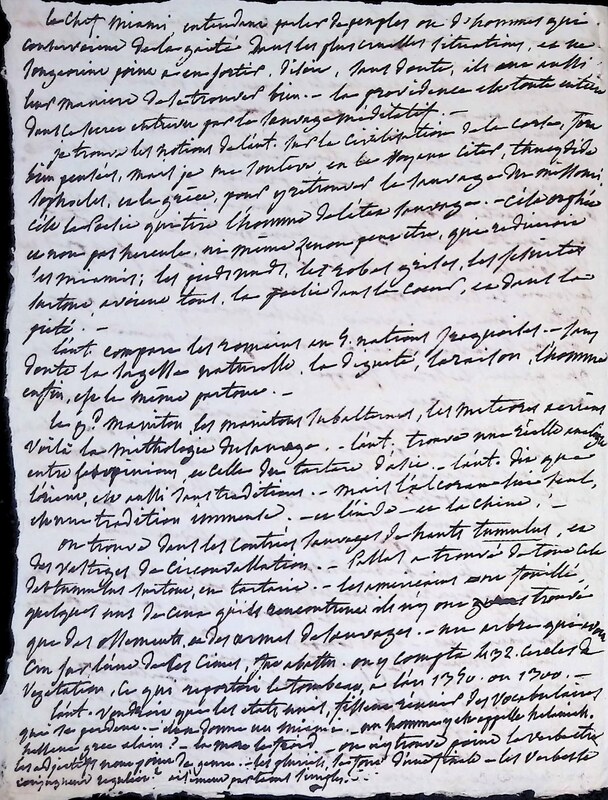 le chef Miami, entendant parler de peuples ou d'hommes qui
conservent de la gaité dans les plus cruelles situations, et ne
songeoient point a en sortir, disoit, sans doute, ils ont aussi
leur maniere de se trouver bien. - la providence est toute entiere
dans ce secret entrevu par le sauvage méditatif. -
je trouve les notions de l'aut. sur la civilisation de la Corse, fort
bien pensées, mais je me souleve en le voyant citer, thucydide
Sophocles, et la grèce, pour y retrouver le sauvage du missouri
c'est la Poesie qui tire l'homme de l'état sauvage. - c'est orphée
et non pas hercule, ni meme Zenon peut etre, que
les miamis; les pieds nuds, les robes grises, les jesuites
surtout, avoient tout, la poesie dans le coeur, et dans la
piété. -
l'aut. compare les romains aux 5. nations iraquoises. - sans
doute la sagesse naturelle, la dignité, la raison, l'homme
enfin, est le même partout. -
le gd manitou, les manitous subalternes, les météores aeriens
voila la mithologie du sauvage. - l'aut. trouve une réelle analogie
entre ces opinions, et celle du tartare d'asie. - l'aut. dit que
l'orient, est aussi sans traditions. - mais l'alcoran seul,
est une tradition immense - et l'inde - et la Chine! -
on trouve dans les contrées sauvages de hauts tumulus, et
des vestiges de circonvallation. - Pallas a trouvé de tout cela
des tumulus surtout, en tartarie. - les americains ont fouillé,
quelques uns de ceux qu'ils rencontrent ils n'y ont trouvé
que des ossements, et des armes de sauvages. - un arbre qui avoit
cru sur l'une de les cimes, fut abattu. on y compte 432. cercles de
végétation, ce qui reporte le tombeau, a l'an 1350. ou 1300. -
l'aut. voudroit que les états unis, fissent reunir des vocabulaires
qui se perdent. - il en donne un miami. - un homme y est appelé
hellene grec ? - la mort le froid - on n'y trouve point le verbe être
les adjectifs n'ont point de genre. - les pluriels, se font d'une finale - les verbes se
conjuguent